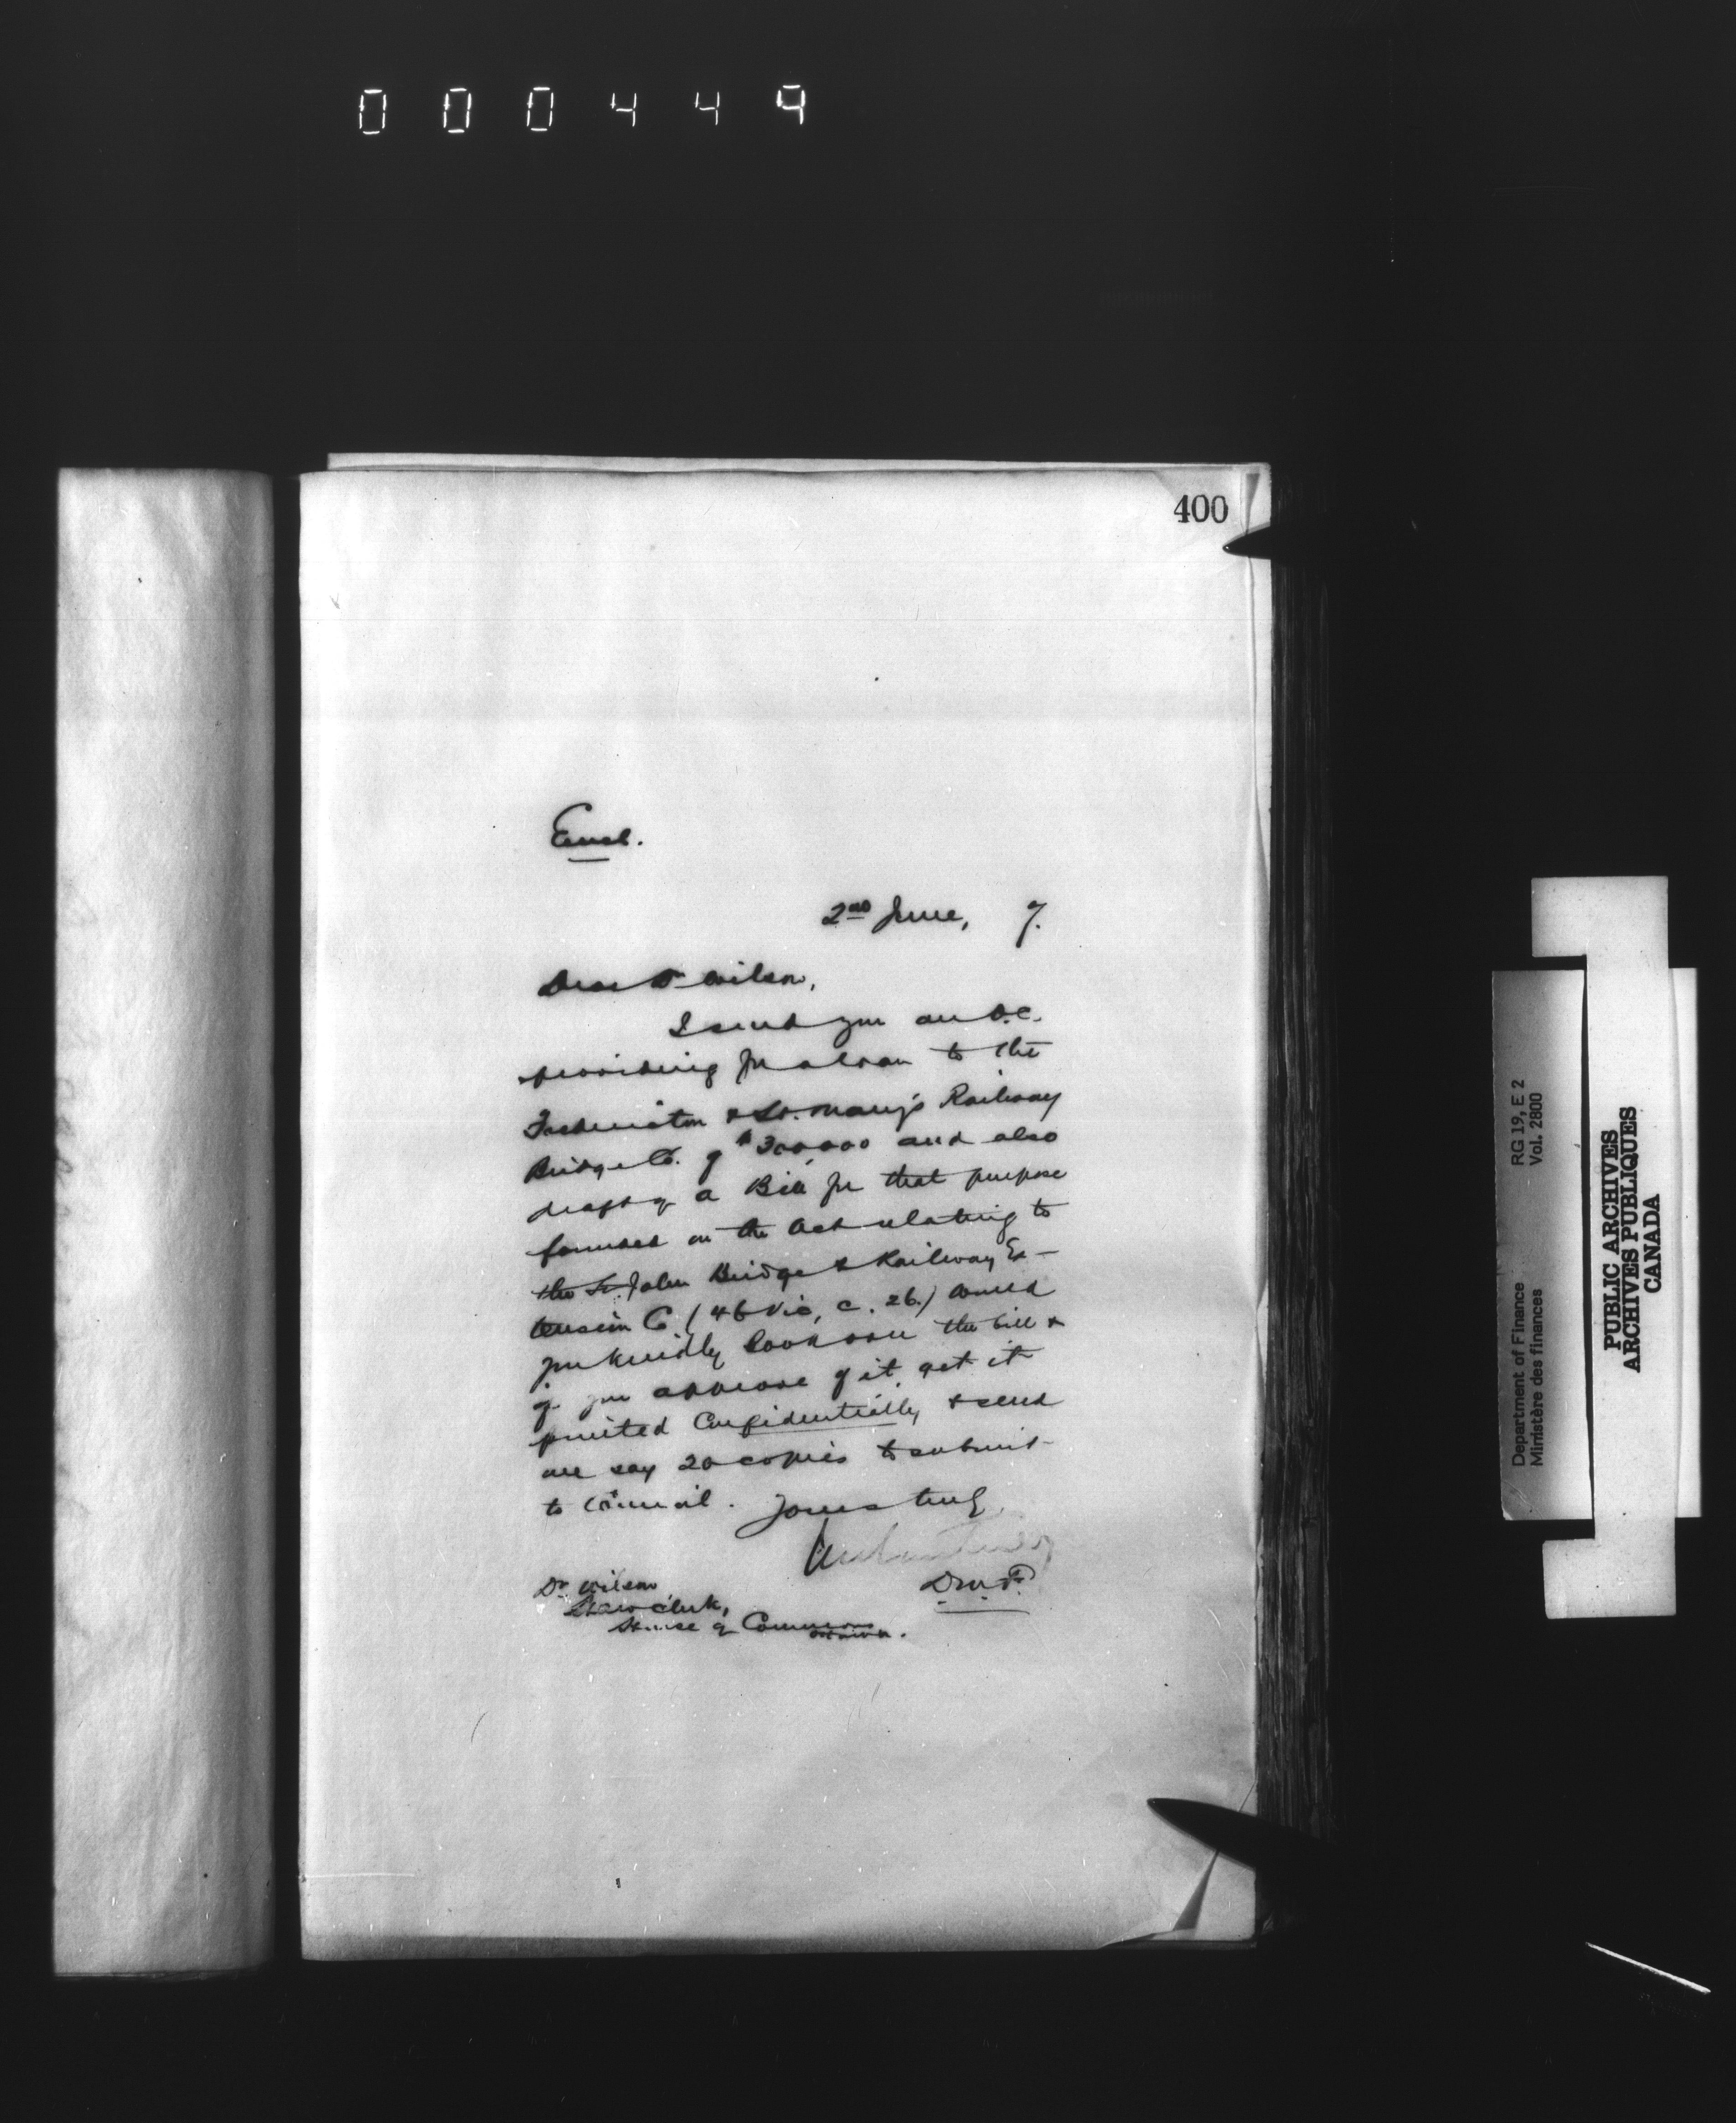 000449
400
Encl.
2nd June, 7.
Dear Dr Wilson,
I send you an O.C.
providing for a loan to the
Fredericton & St. Mary's Railway
Bridge Co. of $300,000 and also
draft of a Bill for that purpose
founded on the Act relating to
the St. John Bridge & Railway Ex-
tension Co (46 Vic, c. 26.) Would
you kindly look over the bill &
if you approve of it, get it
printed Confidentially & send
me say 20 copies to submit
to Council. Yours truly
D.M.F.
Dr Wilson
Law Clerk,
House of Commons
Ottawa.
Department of Finance
Ministère des finances
RG 19, E 2
Vol. 2800
PUBLIC ARCHIVES
ARCHIVES PUBLIQUES
CANADA